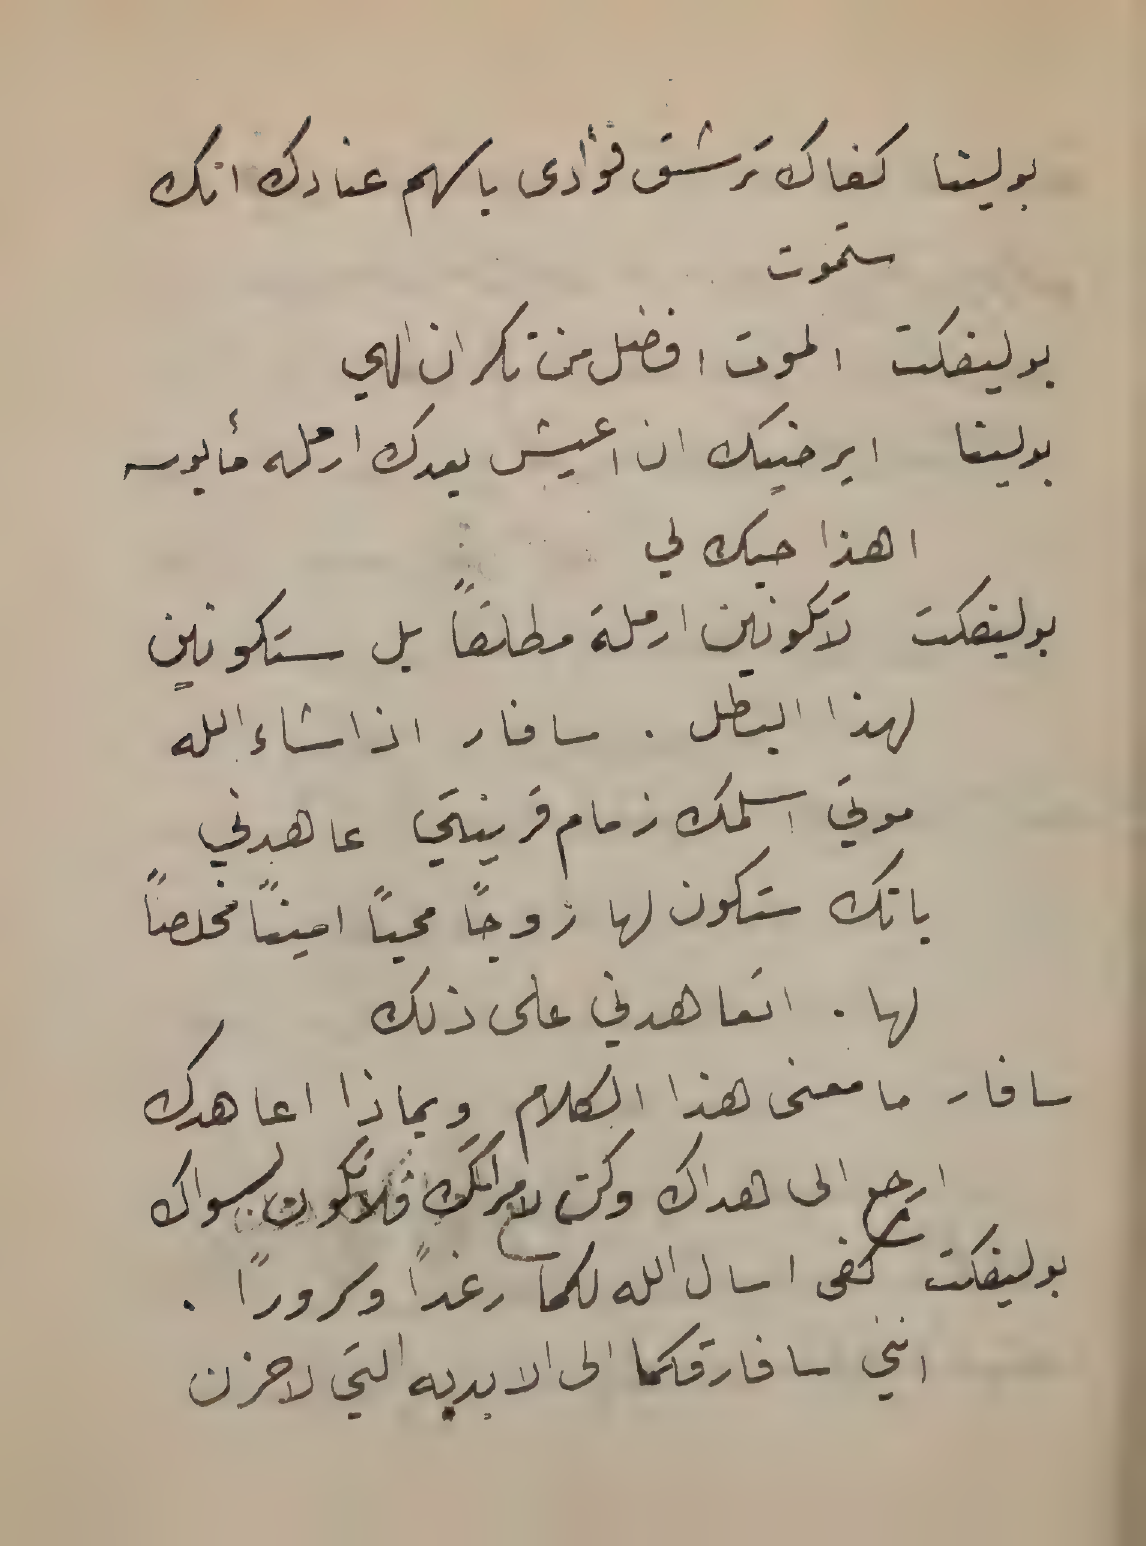 بولينا كفاك ترشق فؤادى باسهم عنادك انك
ستموت
بوليفكت الموت افضل من نكران الهي
بولينا ايرضيك ان اعيش بعدك ارمله مأيوسه
اهذا حبك لي
بوليفكت لاتكونين ارملة مطلقاً بل ستكونين
لهذا البطل . سافار اذا شاء الله
موتي اسلمك زمام قرينتي عاهدني
بانك ستكون لها زوجاً محباً اميناً مخلصاً
لها . اتعاهدني على ذلك
سافار ما معنى هذا الكلام وبماذا اعاهدك
ارجع الى هداك وكن لامرأتك فلاتكون لسواك
بوليفكت كفى اسال الله لكما رغداً وسروراً .
انني سافارقكما الى الابديه التي لاحزن